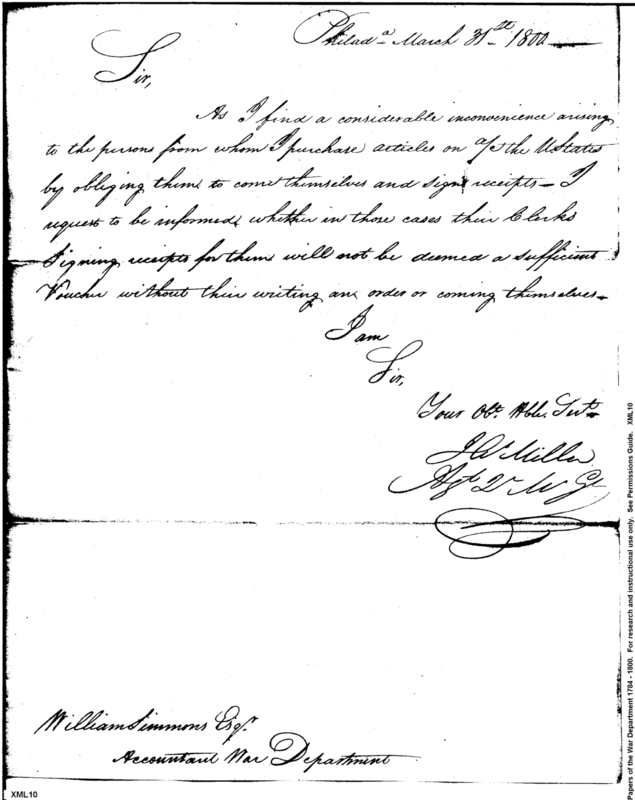 Philada March 31st 1800
Sir,
As I find a considerable inconvenience arising
to the persons from whom I purchase articles on a/c the UStates
by obliging them to come themselves and sign receipts – I
request to be informed whether in those cases their Clerks
Signing receipts for them will not be deemed a sufficient
Voucher without their writing an order or coming themselves –
I am
Sir,
Your Obt. Hble. Servt.
Jn Miller
Agt Qr Mr Gl
William Simmons Esqr.
Accountant War Department
XML10
Papers of the War Department 1784 - 1800. For research and instructional use only. See Permissions Guide. XML10